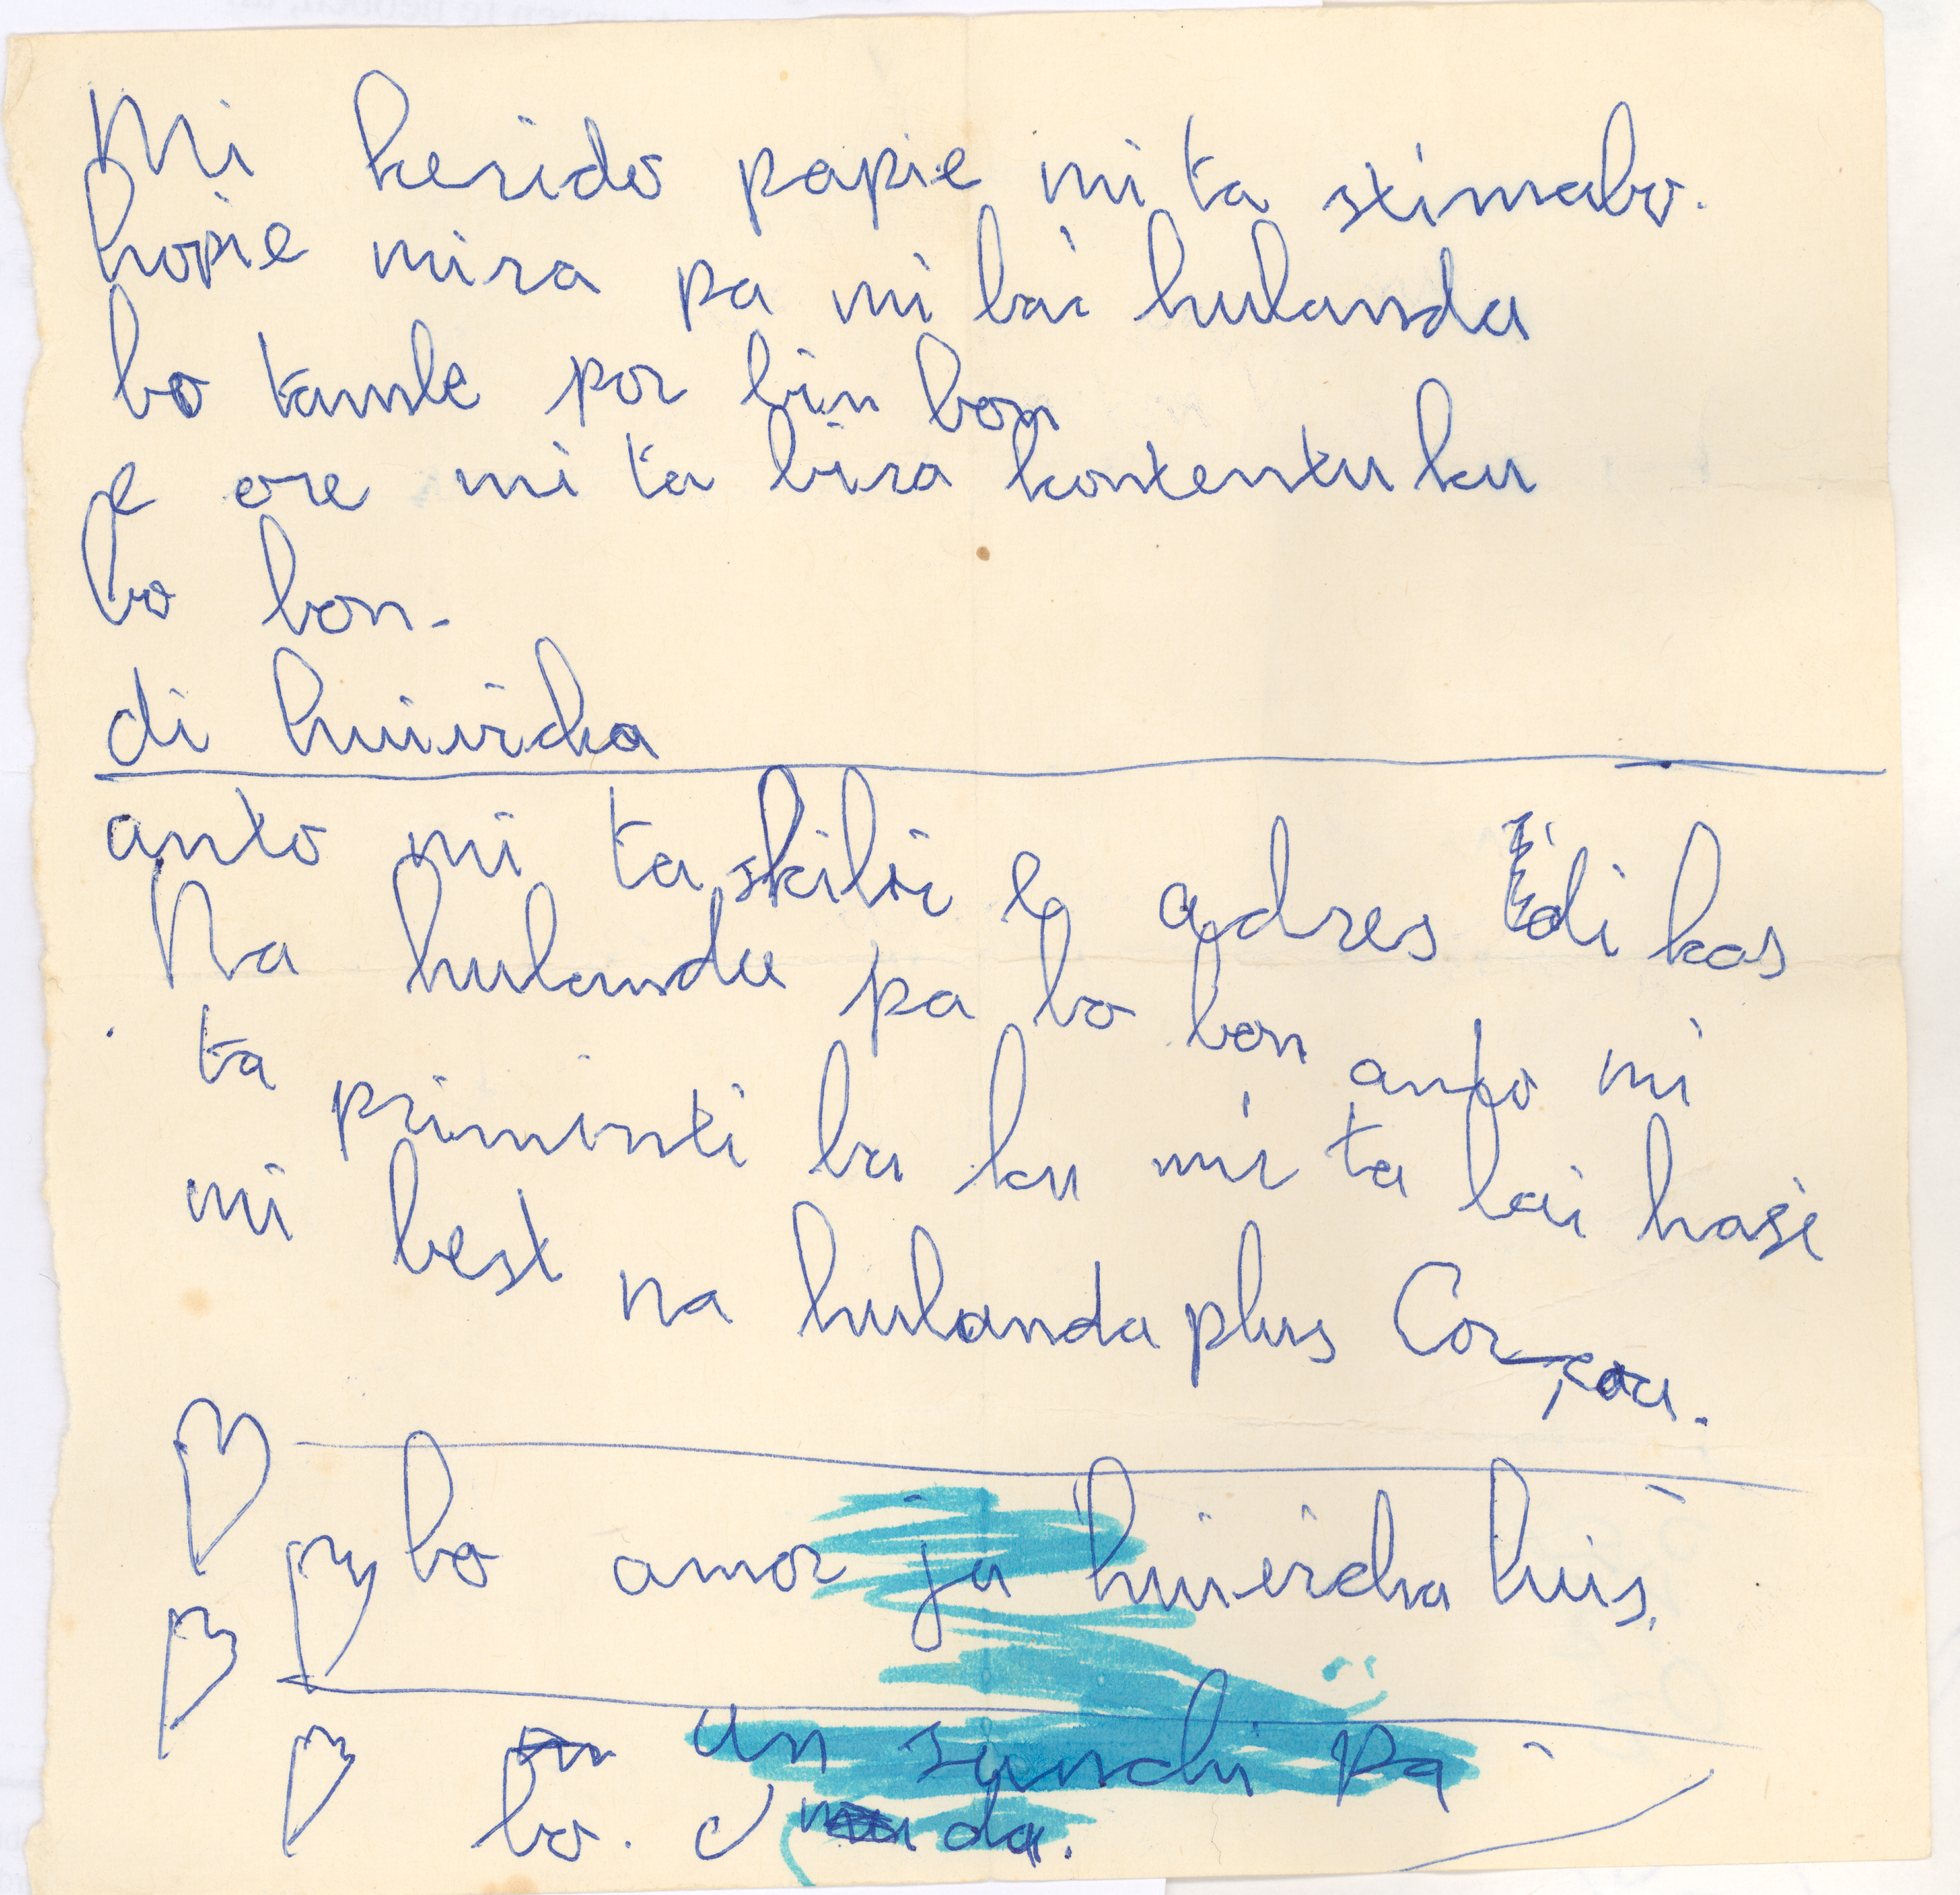 Mi kerido papie mi ta stimabo.
hopie mira pa mi bai hulanda
bo tambe por bin bon
e ore mi ta bira kontentu ku
bo bon.
di huiircha
anto mi ta skibi e adres di kas
Na hulanda pa bo bon anto mi
ta priminti bu ku mi ta bai hasi
mi best na hulanda plus Corçou.
bo amor ju huiircha luis,
un sunchi pa
bo.